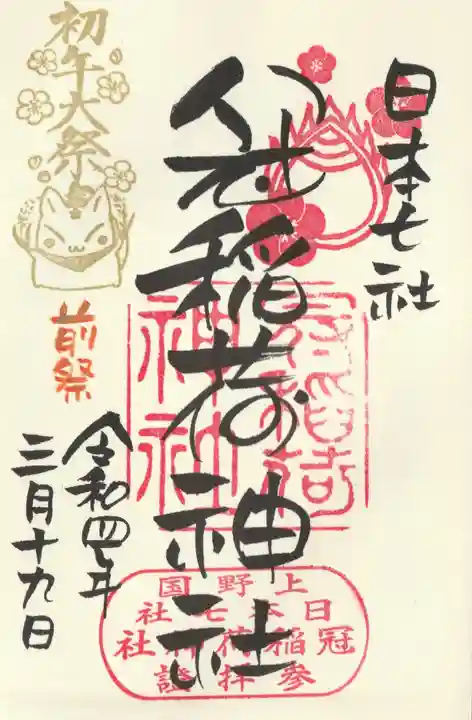 日本七社
冠稲荷神社
冠稲荷
神社
上野国
日本七社
冠稲荷神社
参拝證
初午大祭
前祭
令和四年
三月十九日